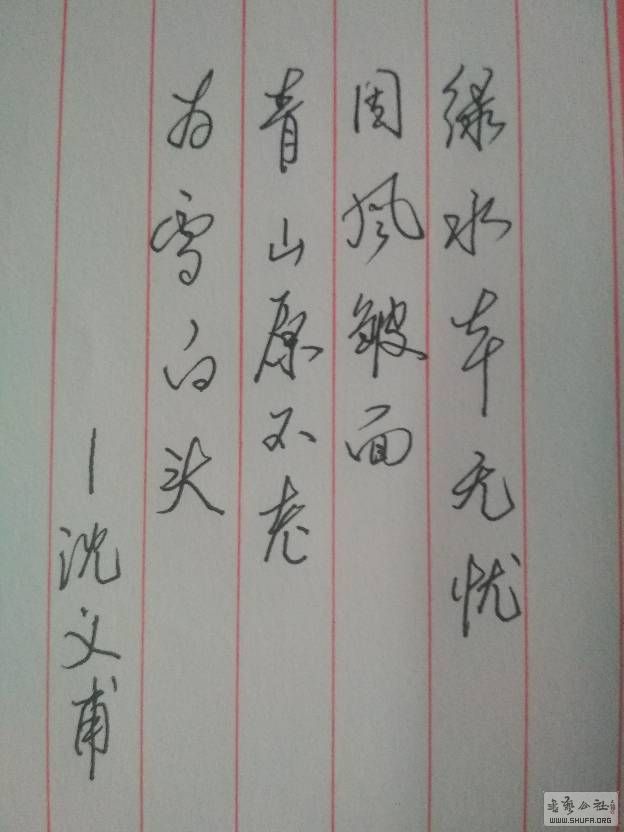 绿水本无忧
因风皱面
青山原不老
为雪白头
—沈文甫
WWW.SHUFA.ORG